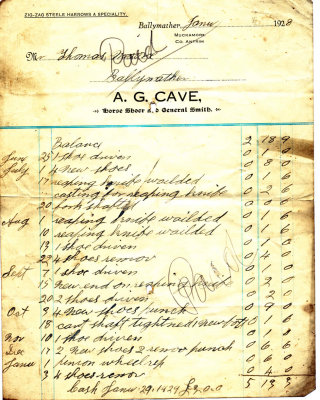 ZIG-ZAG STEELE HARROWS A SPECIALITY.
Ballymather, Janu 1928
MUCKAMORE
CO. ANTRIM
Mr Thomas
Paid
Ballymather
A. G. CAVE,
Horse Shoer and General Smith.
Balance 2 18 9
Jan 25 1 shoe driven 0 1 0
July 1 4 new shoes 0 8 0
reaping knife wailded 0 1 6
reaping knife 0 2 6
20 fork shafted 0 1 6
Aug 1 reaping knife wailded 0 1 6
10 reaping knife wailded 0 1 6
13 1 shoe driven 0 1 0
22 4 shoes remov 0 4 0
Sept 7 1 shoe driven 0 1 0
15 new end on reaping
20 2 shoes driven 0 2 0
Paid
Oct 3 4 new shoes punch 0 9
18 cart shaft tightned
Nov 10 1 shoe driven 0 1 0
Dec 17 2 new shoes 2 remov punch 0 6 6
Janu 1 pinion wheel rep
3 4 shoes remov 0 4 0
Cash Janu 29. 1929 £3.0.0 5 13 3